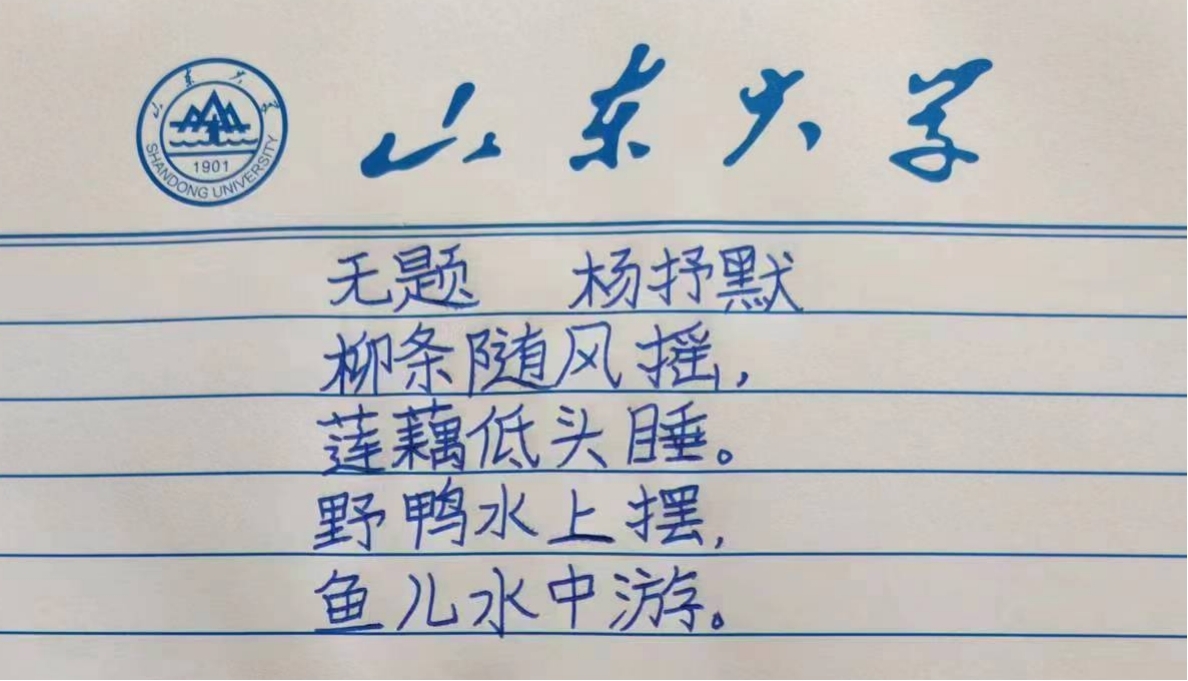 山东大学
山东大学
1901
SHANDONG UNIVERSITY
无题 杨抒默
柳条随风摇,
莲藕低头睡。
野鸭水上摆,
鱼儿水中游。